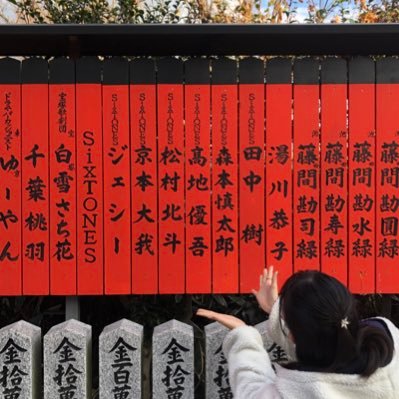 ゆーやん
千葉桃羽
宝塚歌劇団
白雪さち花
SixTONES
SixTONES
ジェシー
SixTONES
京本大我
SixTONES
松村北斗
SixTONES
髙地優吾
SixTONES
森本慎太郎
SixTONES
田中樹
湯川恭子
藤間勘司緑
藤間勘寿緑
藤間勘水緑
藤間勘圓緑
金拾萬
金拾萬
金百萬
金拾萬
金拾萬